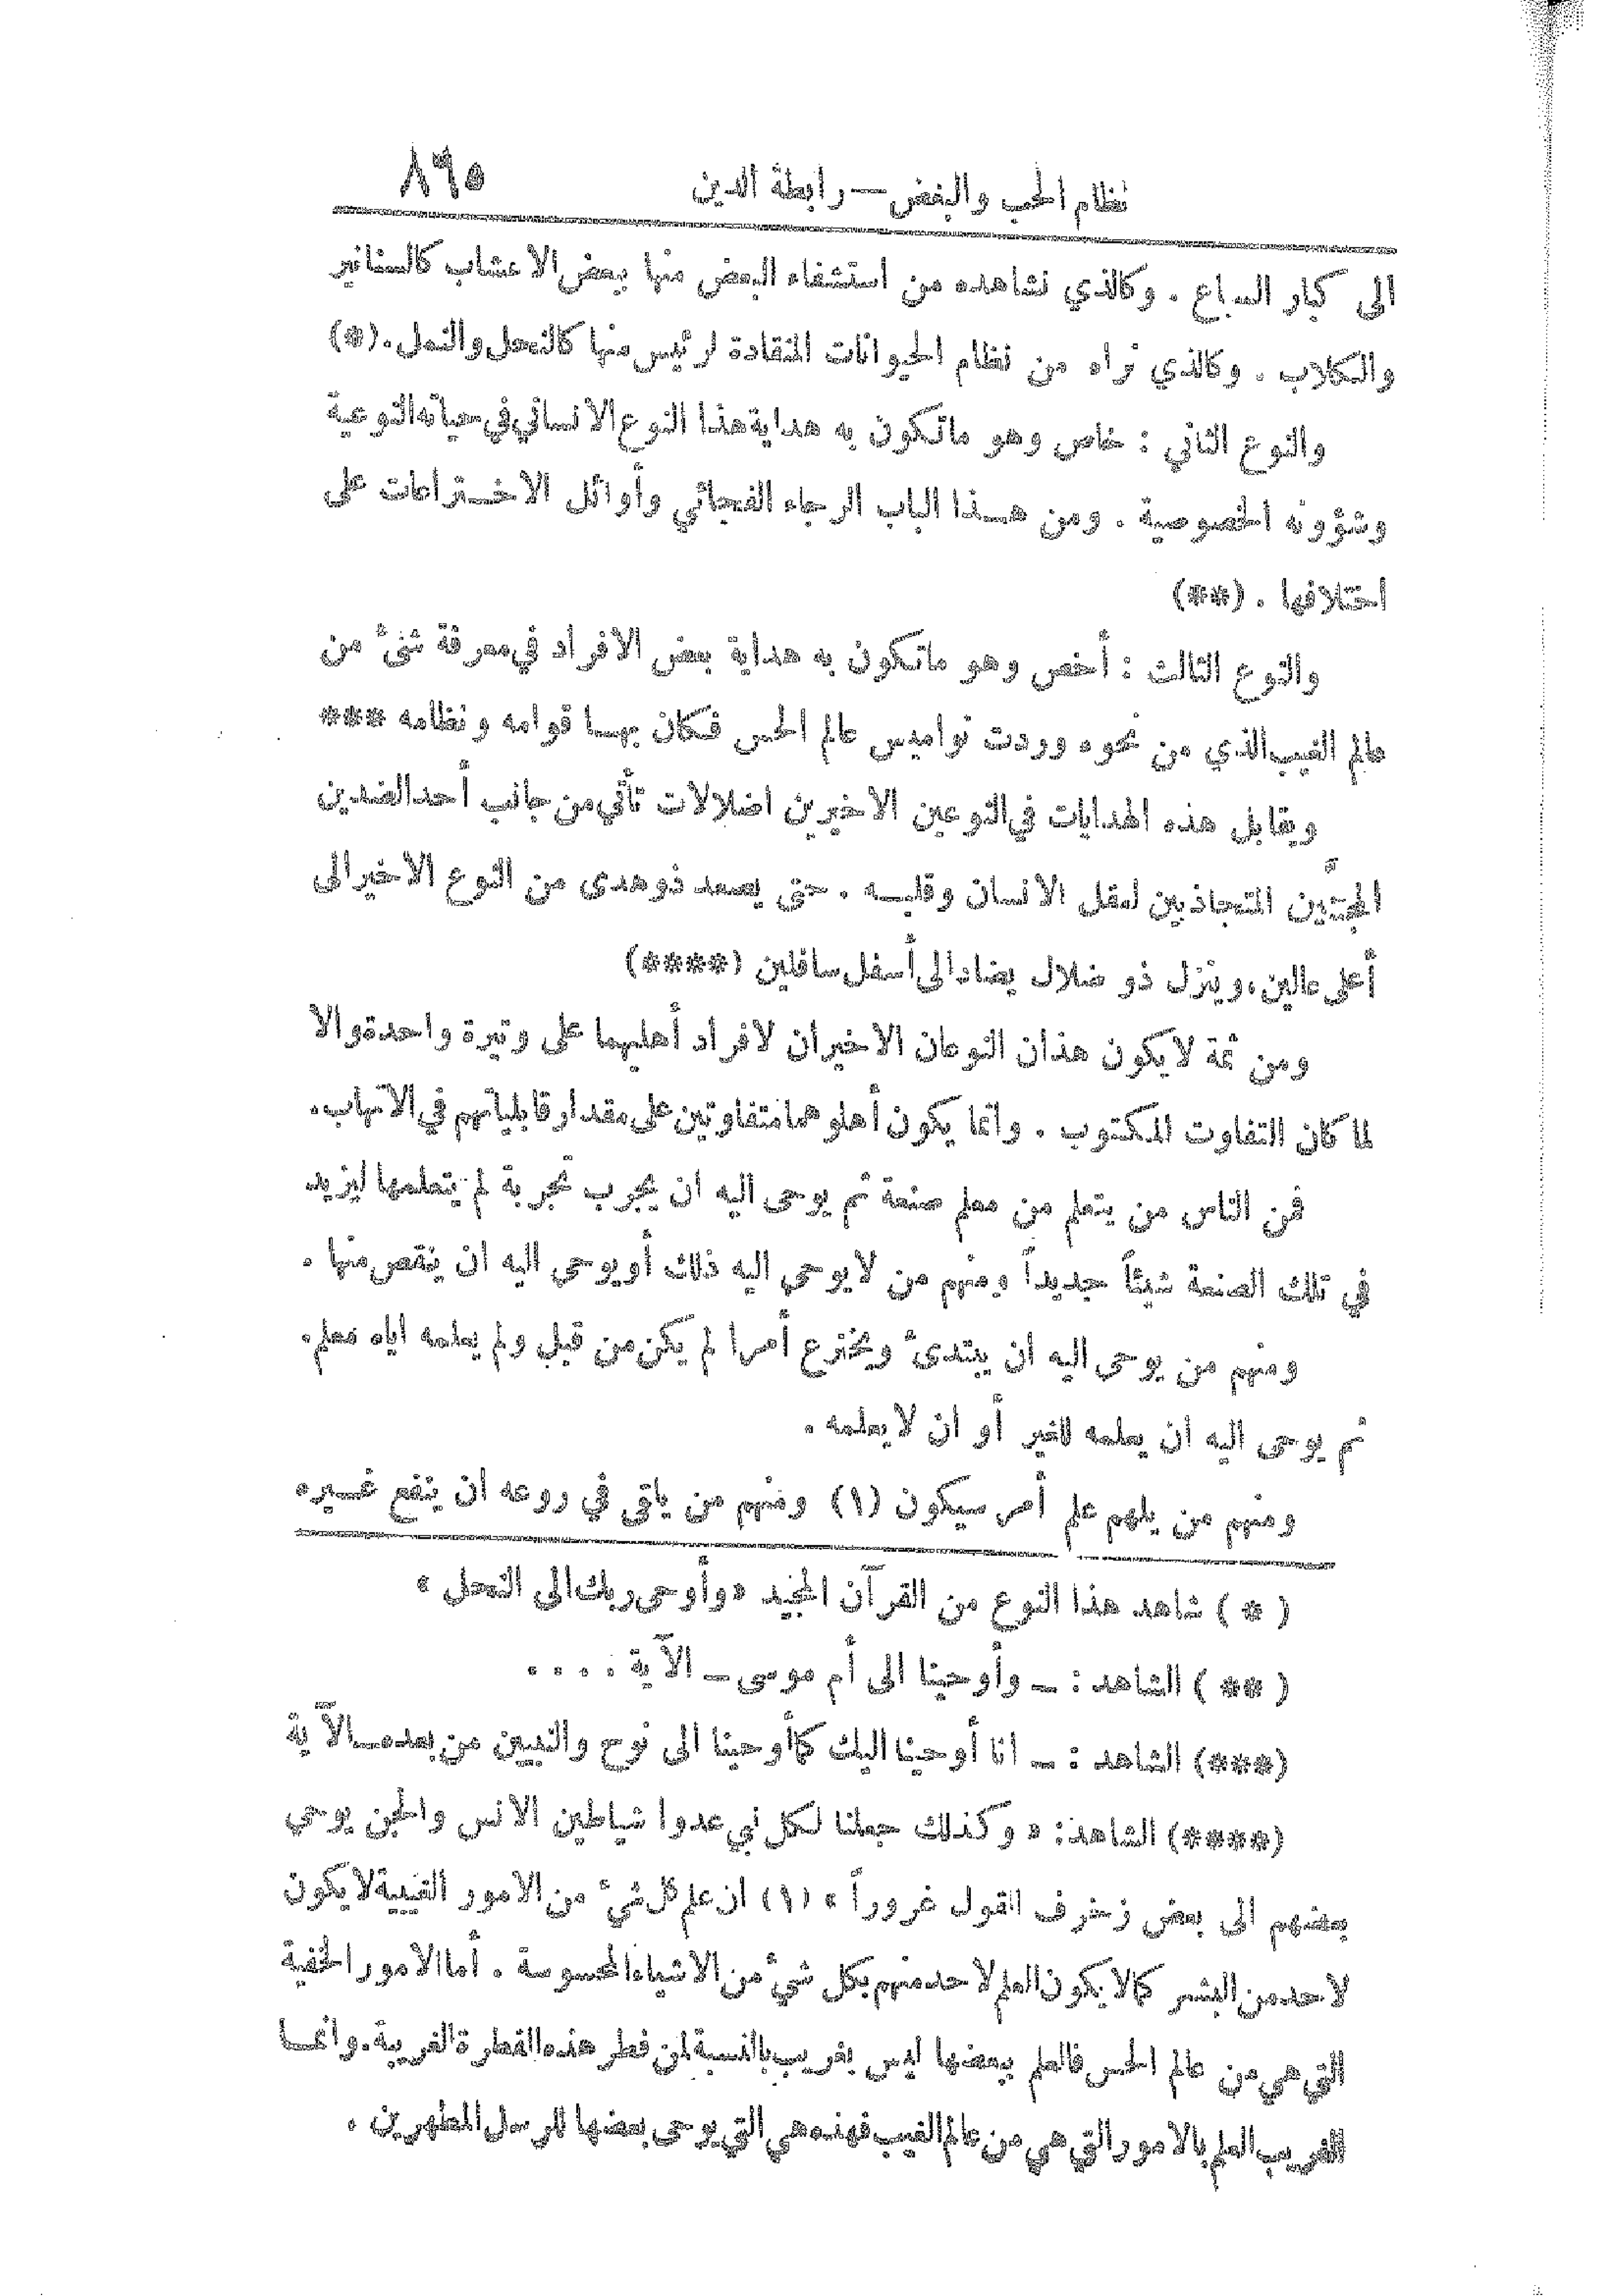 نظام الحب والبغض — رابطة الدين ٨٦٥
الى كبار السباع . وكالذي نشاهده من استشفاء البعض منها ببعض الاعشاب كالسنانير
والكلاب . وكالذي نراه من نظام الحيوانات المنقادة لرئيس منها كالنحل والنمل . (*)
والنوع الثاني : خاص وهو ماتكون به هداية هذا النوع الانساني في حياته النوعية
وشؤونه الخصوصية . ومن هذا الباب الرجاء الفجائي وأوائل الاختراعات على
اختلافها . (**)
والنوع الثالث : أخص وهو ماتكون به هداية بعض الافراد في معرفة شئ من
عالم الغيب الذي من نحوه وردت نواميس عالم الحس فكان بها قوامه ونظامه ***
ويقابل هذه الهدايات في النوعين الاخيرين اضلالات تأتي من جانب أحد الضدين
المتجاذبين لعقل الانسان وقلبه . حتى يصعد ذو هدى من النوع الاخير الى
أعلى عالين، وينزل ذو ضلال يضاد الى أسفل سافلين (****)
ومن ثمة لا يكون هذان النوعان الاخيران لافراد أهليهما على وتيرة واحدة والا
لما كان التفاوت المكتوب . وانما يكون أهلوهما متفاوتين على مقدار قابلياتهم في الاتهاب.
فمن الناس من يتعلم من معلم صنعة ثم يوحى اليه ان يجرب تجربة لم يتعلمها ليزيد
في تلك الصنعة شيئاً جديداً ومنهم من لا يوحى اليه ذلك أو يوحى اليه ان ينقص منها .
ومنهم من يوحى اليه ان يبتدئ ويخترع أمرا لم يكن من قبل ولم يعلمه اياه معلم.
ثم يوحى اليه ان يعلمه للغير أو ان لا يعلمه .
ومنهم من يلهم علم أمر سيكون (١) ومنهم من يلقى في روعه ان ينفع غيره
( * ) شاهد هذا النوع من القرآن المجيد «وأوحى ربك الى النحل »
( ** ) الشاهد : ــ وأوحينا الى أم موسى ــ الآية . . . .
(***) الشاهد : ــ انا أوحينا اليك كما أوحينا الى نوح والنبيين من بعده ــ الآية
(****) الشاهد: « وكذلك جعلنا لكل نبي عدوا شياطين الانس والجن يوحي
بعضهم الى بعض زخرف القول غروراً » (١) ان علم كل شيء من الامور الغيبية لا يكون
لاحد من البشر كما لا يكون العلم لاحد منهم بكل شيء من الاشياء المحسوسة . أما الامور الخفية
التي هي من عالم الحس فالعلم ببعضها ليس بغريب بالنسبة لمن فطر هذه الفطرة الغريبة . وانما
الغريب العلم بالامور التي هي من عالم الغيب فهذه هي التي يوحى بعضها للرسل المطهرين .